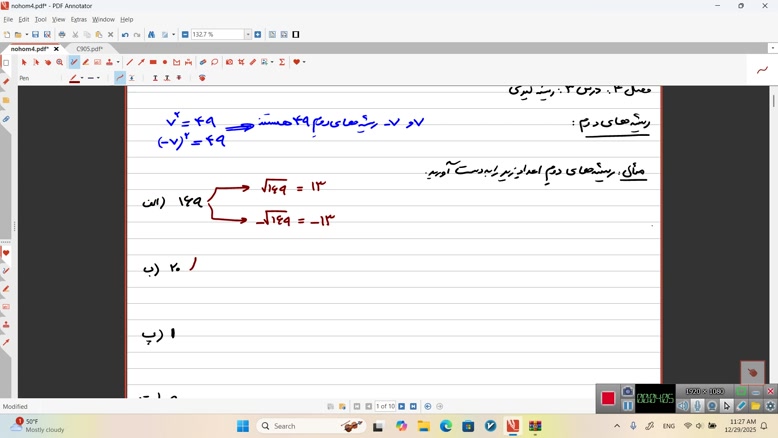 nohom4.pdf* - PDF Annotator
File Edit Tool View Extras Window Help
132.7 %
nohom4.pdf* C905.pdf*
Pen
فصل ۴ : درس ۳ : ریشه گیری
ریشه های دوم :
۷² = ۴۹
(-۷)² = ۴۹
۷ و ۷- ریشه های دوم ۴۹ هستند
مثال: ریشه های دوم اعداد زیر را به دست آورید.
الف) ۱۶۹
√۱۶۹ = ۱۳
-√۱۶۹ = -۱۳
ب) ۲۰
پ) ۱
Modified
1 of 10
1920 x 1080
50°F
Mostly cloudy
Search
ENG
11:27 AM
12/29/2025